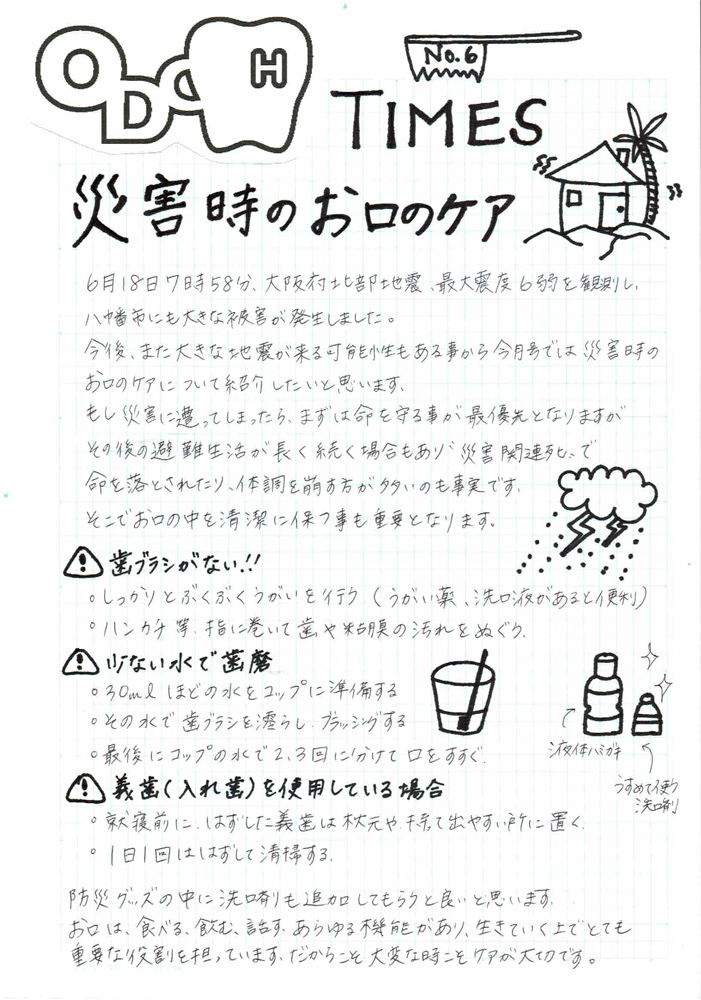 ODCH
No.6
TIMES
災害時のお口のケア
6月18日7時58分、大阪府北部地震、最大震度6弱を観測し、
八幡市にも大きな被害が発生しました。
今後、また大きな地震が来る可能性もある事から今月号では災害時の
お口のケアについて紹介したいと思います。
もし災害に遭ってしまったら、まずは命を守る事が最優先となりますが
その後の避難生活が長く続く場合もあり、災害関連死で
命を落とされたり、体調を崩す方が多いのも事実です。
そこでお口の中を清潔に保つ事も重要となります。
歯ブラシがない!!
○しっかりとぶくぶくうがいを行う(うがい薬、洗口液があると便利)
○ハンカチ等、指に巻いて歯や粘膜の汚れをぬぐう。
少ない水で歯磨
○30mlほどの水をコップに準備する
○その水で歯ブラシを濡らし、ブラッシングする
○最後にコップの水で2、3回に分けて口をすすぐ。
液体ハミガキ
うすめて使う
洗口剤
義歯(入れ歯)を使用している場合
○就寝前に、はずした義歯は枕元や持って出やすい所に置く。
○1日1回ははずして清掃する。
防災グッズの中に洗口剤も追加してもらうと良いと思います。
お口は、食べる、飲む、話す、あらゆる機能があり、生きていく上でとても
重要な役割を担っています。だからこそ大変な時こそケアが大切です。